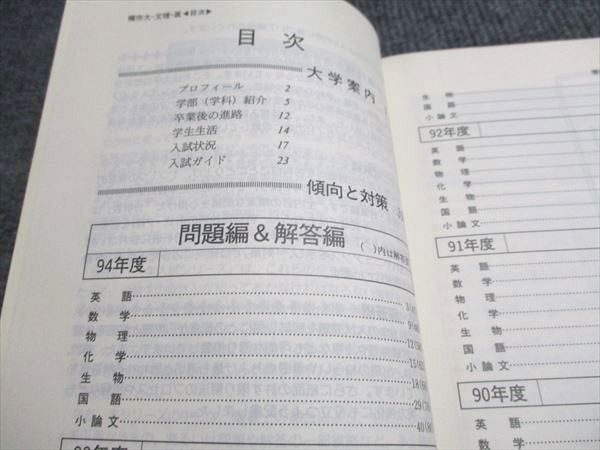 横市大-文理・医◀目次▶
目次
大学案内
プロフィール 2
学部（学科）紹介 5
卒業後の進路 12
学生生活 14
入試状況 17
入試ガイド 23
傾向と対策
問題編＆解答編
（ ）内は解答
94年度
英語 3
数学 9
物理 12
化学 15
生物 18
国語 29
小論文 40
93年度
生物
国語
小論文
92年度
英語
数学
物理
化学
生物
国語
小論文
91年度
英語
数学
物理
化学
生物
国語
小論文
90年度
英語
数学